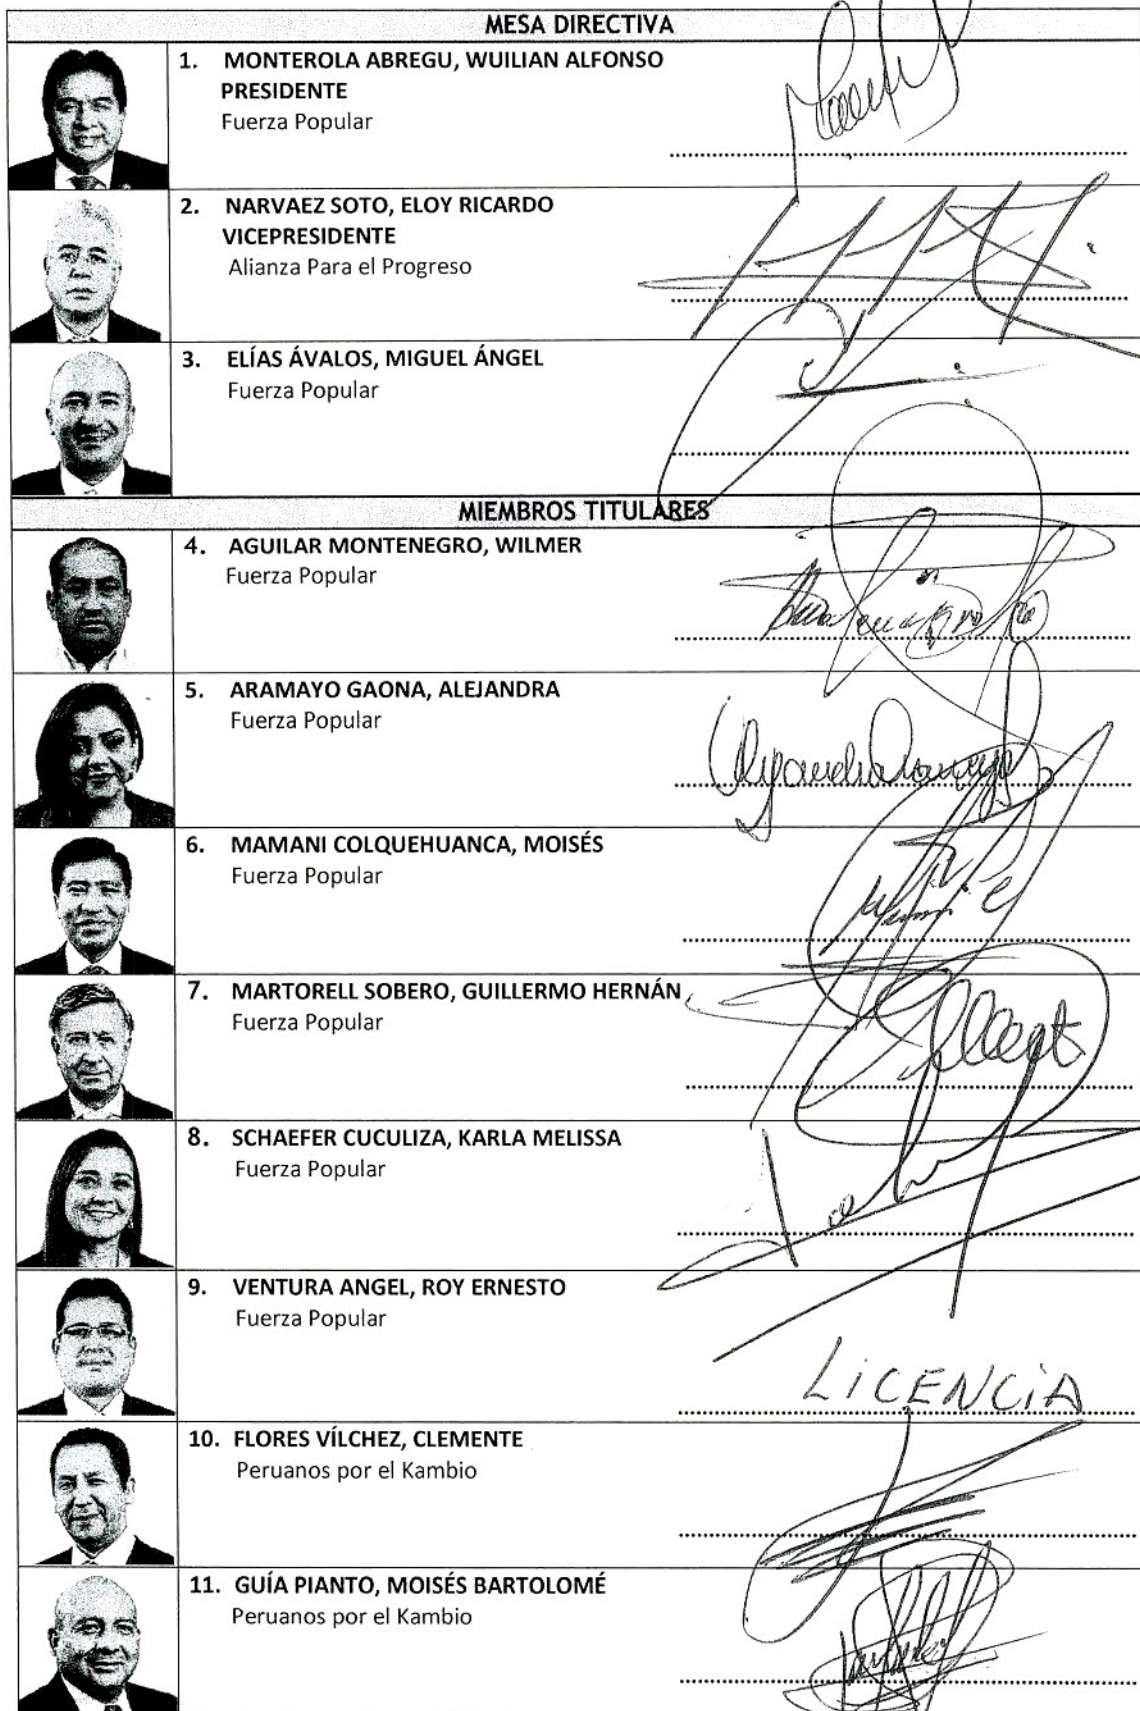 MESA DIRECTIVA
1. MONTEROLA ABREGU, WUILIAN ALFONSO
PRESIDENTE
Fuerza Popular
2. NARVAEZ SOTO, ELOY RICARDO
VICEPRESIDENTE
Alianza Para el Progreso
3. ELÍAS ÁVALOS, MIGUEL ÁNGEL
Fuerza Popular
MIEMBROS TITULARES
4. AGUILAR MONTENEGRO, WILMER
Fuerza Popular
5. ARAMAYO GAONA, ALEJANDRA
Fuerza Popular
6. MAMANI COLQUEHUANCA, MOISÉS
Fuerza Popular
7. MARTORELL SOBERO, GUILLERMO HERNÁN
Fuerza Popular
8. SCHAEFER CUCULIZA, KARLA MELISSA
Fuerza Popular
9. VENTURA ANGEL, ROY ERNESTO
Fuerza Popular
LiCENCiA
10. FLORES VÍLCHEZ, CLEMENTE
Peruanos por el Kambio
11. GUÍA PIANTO, MOISÉS BARTOLOMÉ
Peruanos por el Kambio